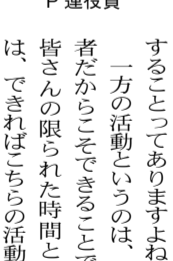 P連役員
することってありますよね
一方の活動というのは、
者だからこそできることで
皆さんの限られた時間と
は、できればこちらの活動